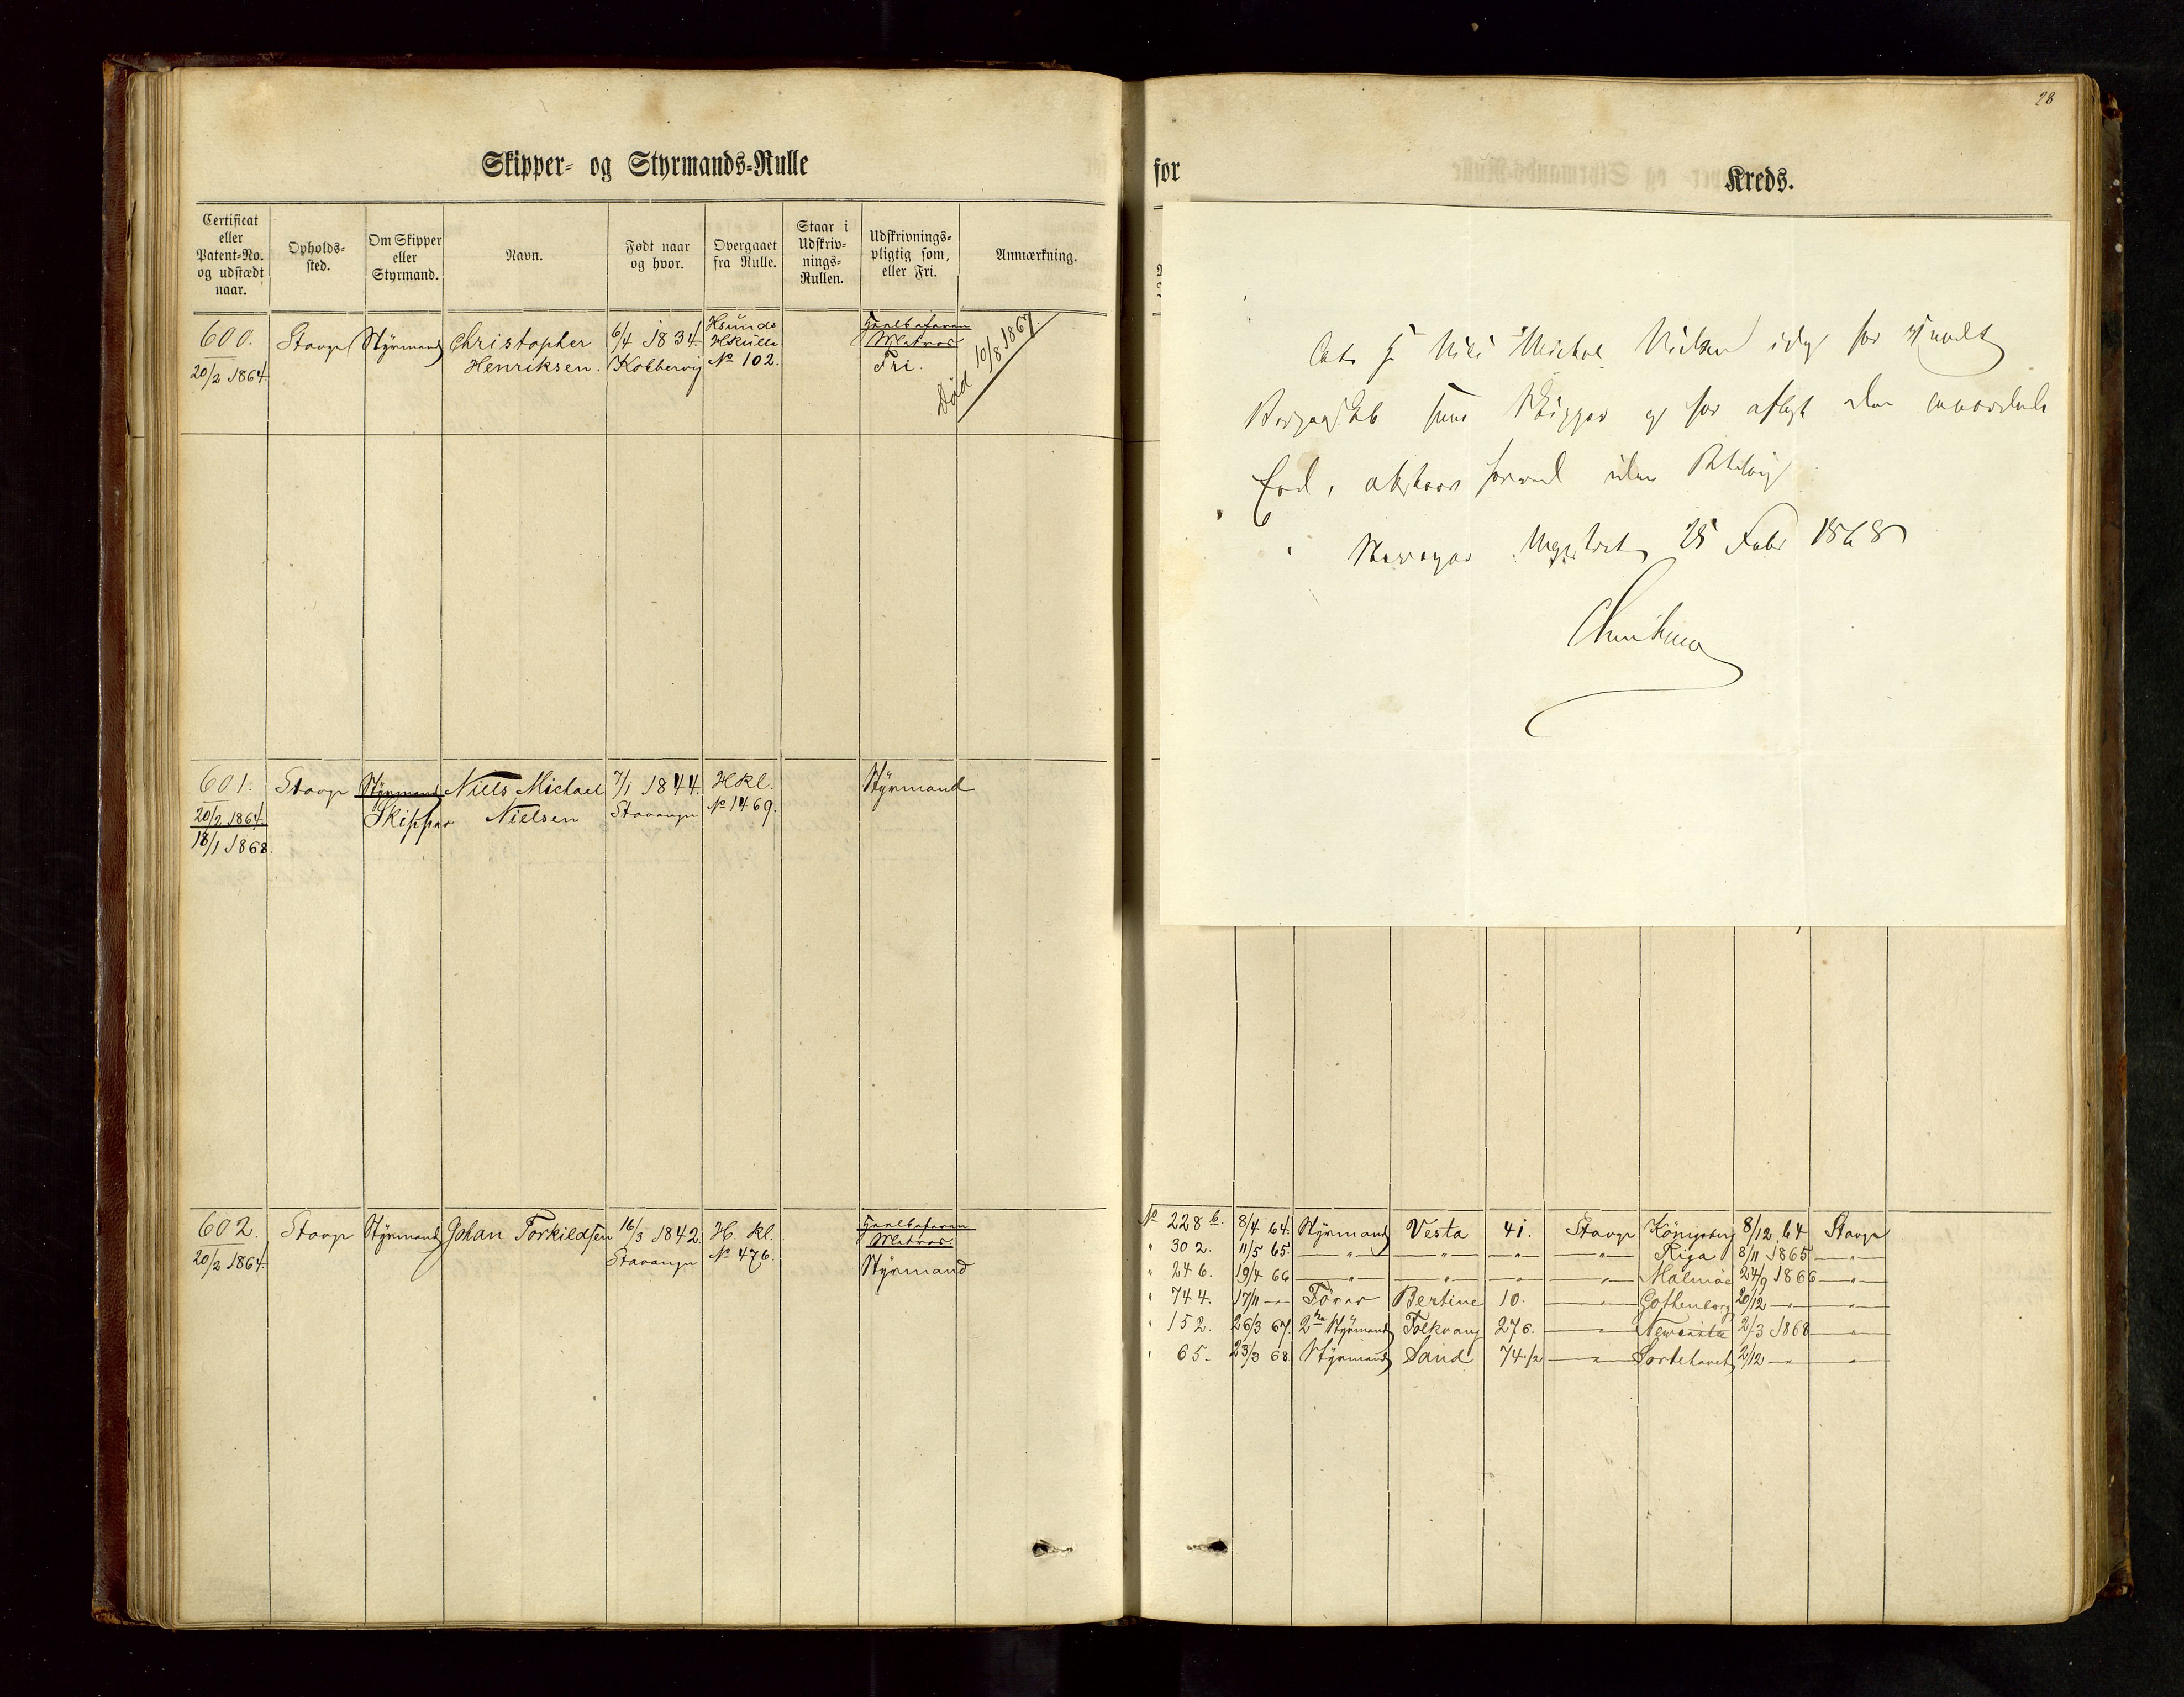 28
Skipper- og Styrmands-Rulle
for
Kreds.
Certificat eller Patent-No. og udstædt naar.
Opholds-sted.
Om Skipper eller Styrmand.
Navn.
Født naar og hvor.
Overgaaet fra Rulle.
Staar i Udskriv-nings-Rullen.
Udskrivnings-pligtig som, eller Fri.
Anmærkning.
600. Stavgr Styrmand Christopher 6/4 1834
20/2 1864. Henriksen. No 102. Fri.
Matros
Død 10/8 1867
at Niels Michael Nielsen idag for
Borgerskab som Skipper og har aflagt den
Eed, attesteres herved
Stavanger Magistrat, 25 Febr 1868
601. Stavgr Styrmand Niels Michael 7/1 1844. HKl. Styrmand
20/2 1864. Skipper Nielsen Stavanger No 1469.
18/1 1868.
602. Stavgr Styrmand Johan Torkildsen 16/3 1842. H. Kl.
20/2 1864. Stavanger No 476. Matros
Styrmand
No 228 b. 8/4 64. Styrmand Vesta 41. Stavgr Königsberg 8/12 64 Stavgr
" 302. 11/5 65. —"— —"— —"— —"— Riga 8/11 1865 —"—
" 246. 19/4 66 —"— —"— —"— —"— Malmöe 24/9 1866 —"—
" 744. 17/11 —"— Förer Bertine 10. —"— Gothenborg 20/12 —"— —"—
" 152. 26/3 67. 2den Styrmand Folkvang 276. —"— 2/3 1868 —"—
" 65. 23/3 68. Styrmand Sand 74 1/2 —"— Sortehavet 2/12 —"— —"—